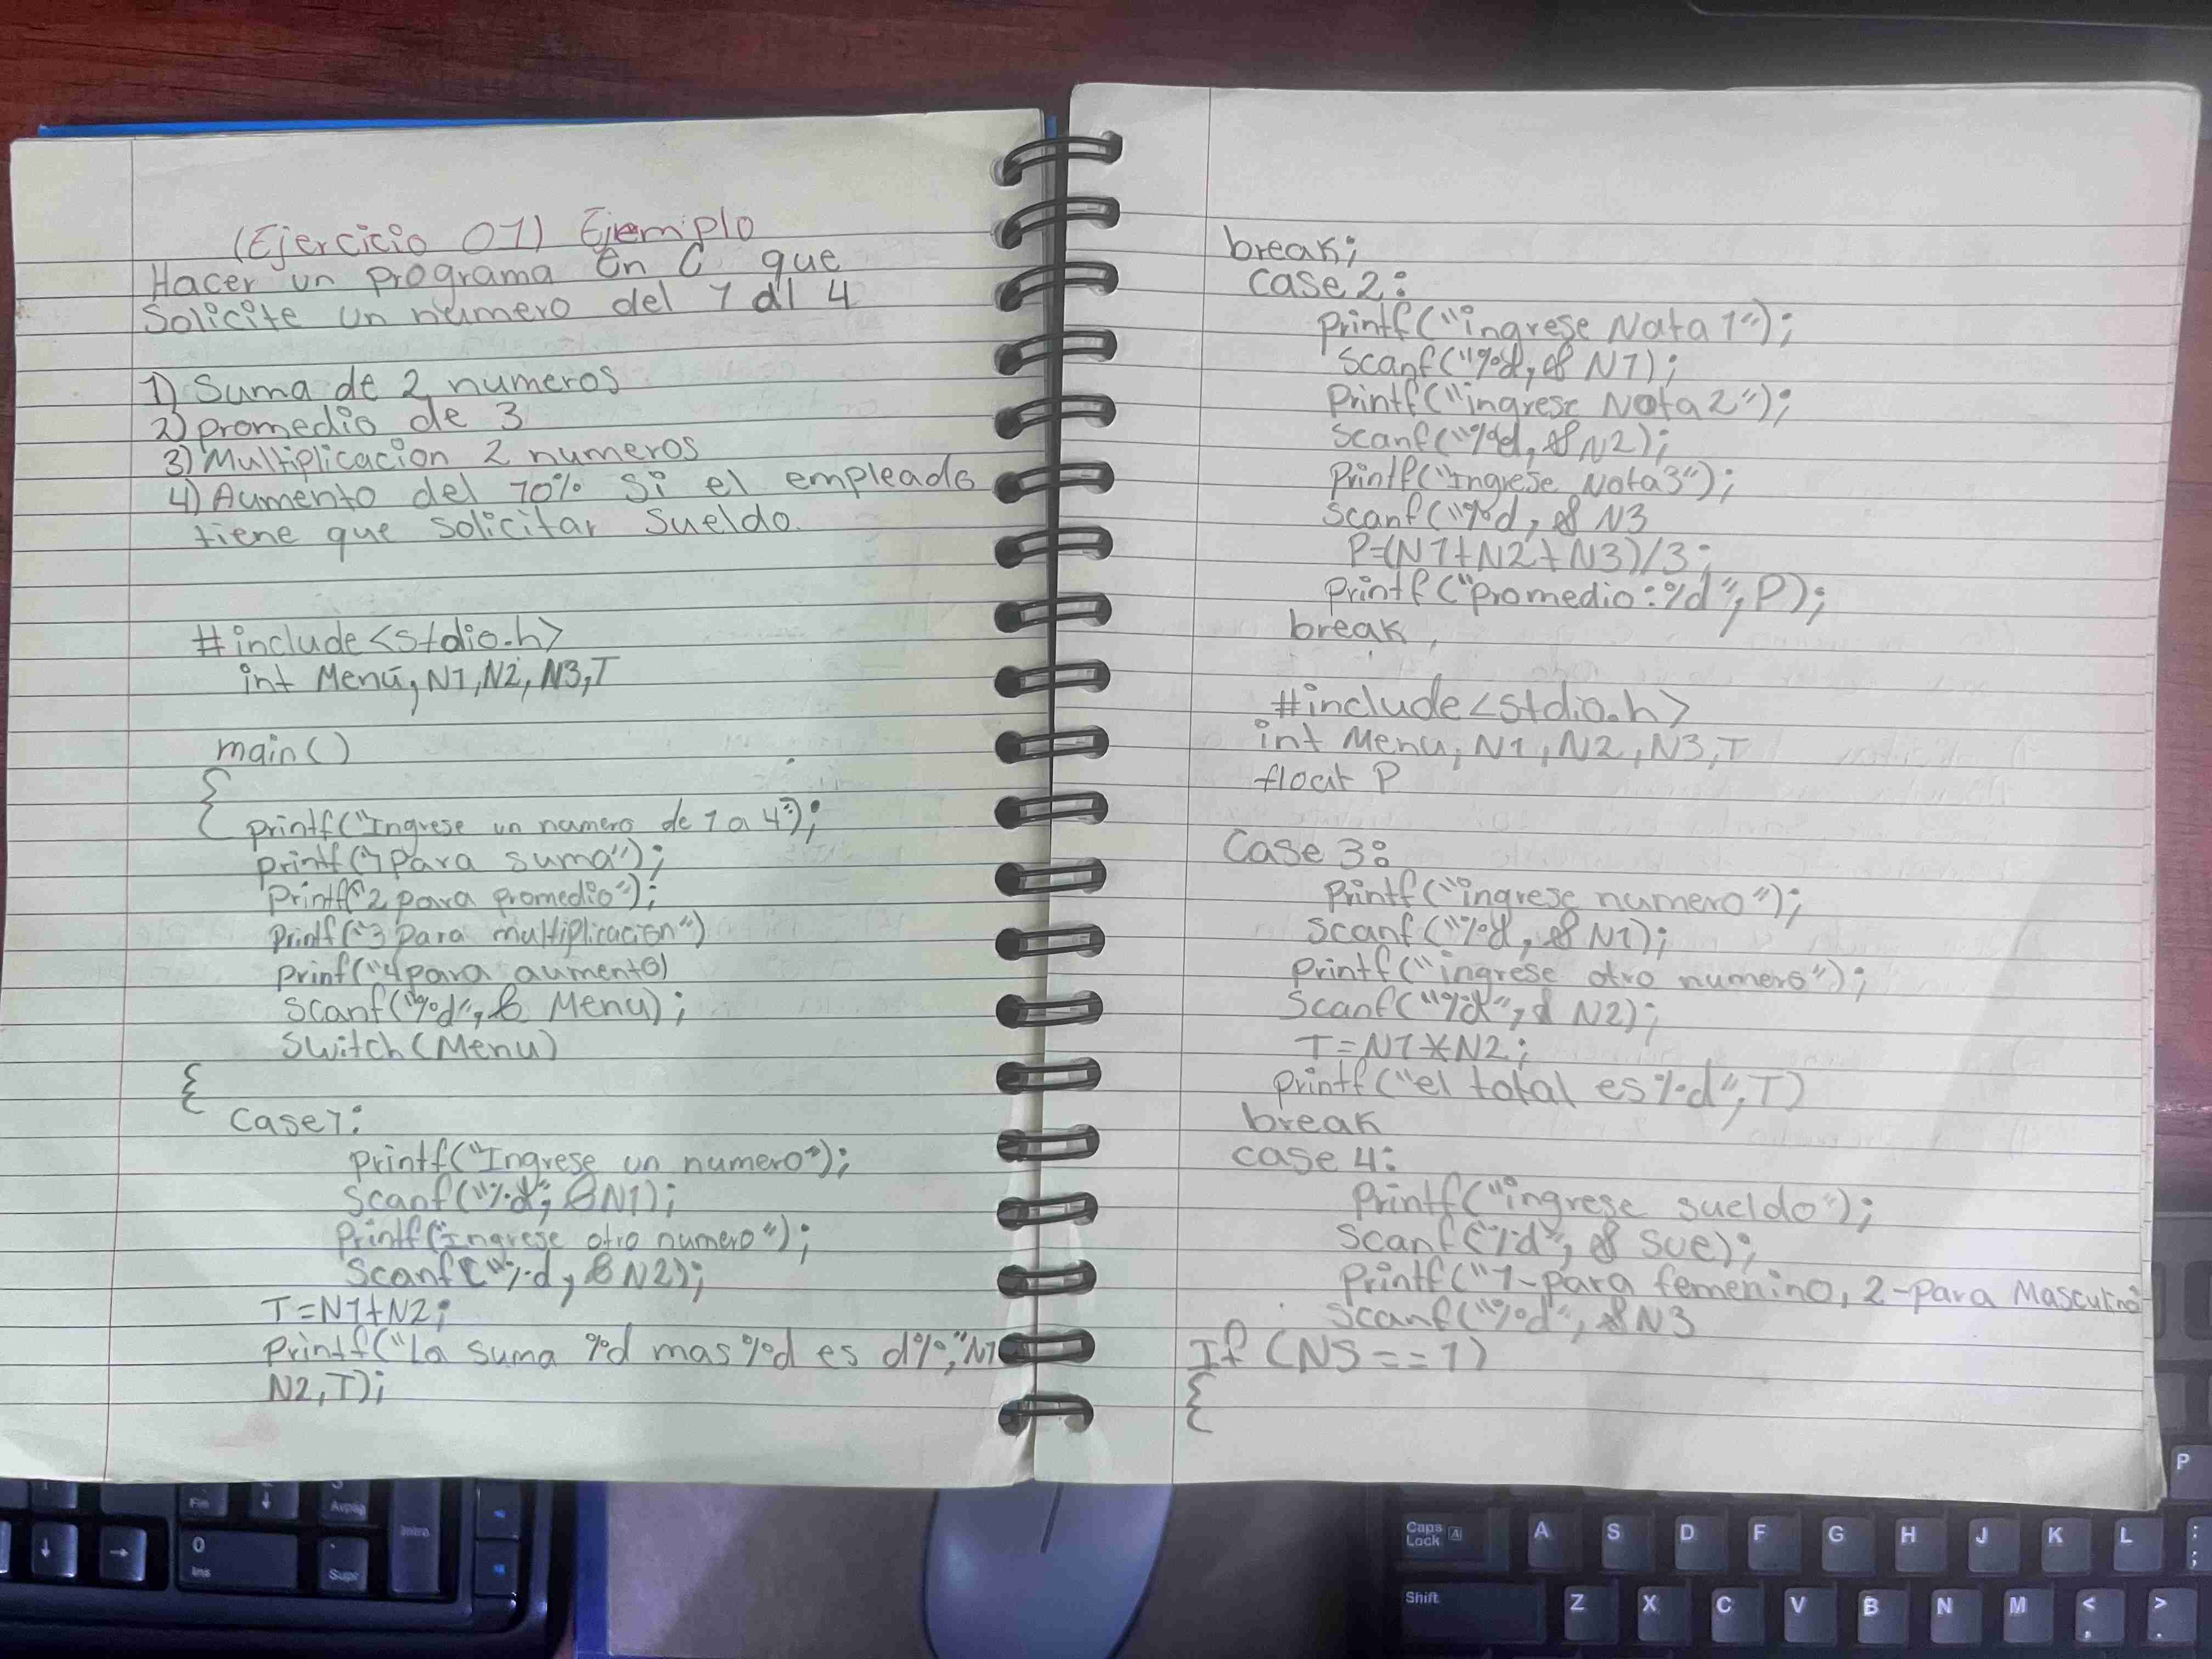 (Ejercicio 01) Ejemplo
Hacer un programa en C que
Solicite un numero del 1 al 4
1) Suma de 2 numeros
2) promedio de 3
3) Multiplicacion 2 numeros
4) Aumento del 10% Si el empleado
tiene que solicitar Sueldo.
#include<stdio.h>
int Menú, N1, N2, N3, T
main()
{
printf("Ingrese un numero de 1 a 4");
printf("1 para suma");
Printf("2 para promedio");
Printf("3 para multiplicacion")
Prinf("4 para aumento)
Scanf("%d", & Menu);
Switch(Menu)
{
Case 1:
printf("Ingrese un numero");
Scanf("%d", &N1);
Printf(ingrese otro numero");
Scanf("%d, &N2);
T=N1+N2;
Printf("La suma %d mas %d es d%,"N1
N2, T);
break;
Case 2:
Printf("ingrese Nata 1");
Scanf("%d, & N1);
Printf("ingrese Nota 2");
Scanf("%d, & N2);
Printf("Ingrese Nota3");
Scanf("%d, & N3
P=(N1+N2+N3)/3;
Printf("Promedio: %d", P);
break,
#include<stdio.h>
int Menu, N1, N2, N3, T
float P
Case 3:
Printf("ingrese numero");
Scanf("%d, & N1);
Printf("ingrese otro numero");
Scanf("%d", & N2);
T=N1*N2;
Printf("el total es %d", T)
break
case 4:
Printf("ingrese sueldo");
Scanf("%d", & sue);
Printf("1-para femenino, 2-para Masculino
Scanf("%d", & N3
If (NS==1)
{
Fin
↓
Avpág
Intro
↓
→
0
Ins
Supr
P
Caps Lock
A
A
S
D
F
G
H
J
K
L
:
;
Shift
Z
X
C
V
B
N
M
<
,
>
.